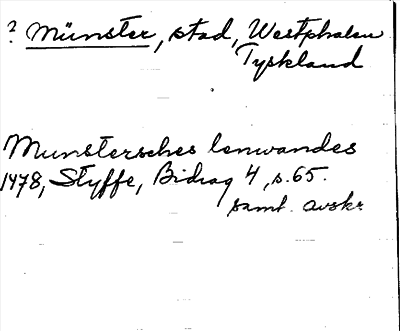 ? Münster, stad, Westphalen
Tyskland
Munstersches lenwandes
1478, Styffe, Bidrag 4, s. 65.
samt. avskr.